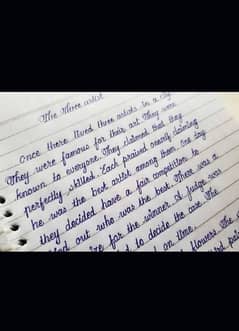 The three artist
Once there lived three artists in a city
They were famous for their art. They were
known to everyone. They claimed that they
perfectly skilled. Each praised claiming
he was the best artist among them. One day
they decided have a fair competition to
find out who was the best. There was a
for the winner. A judge was
to decide the case. The
on time.
flowers. The